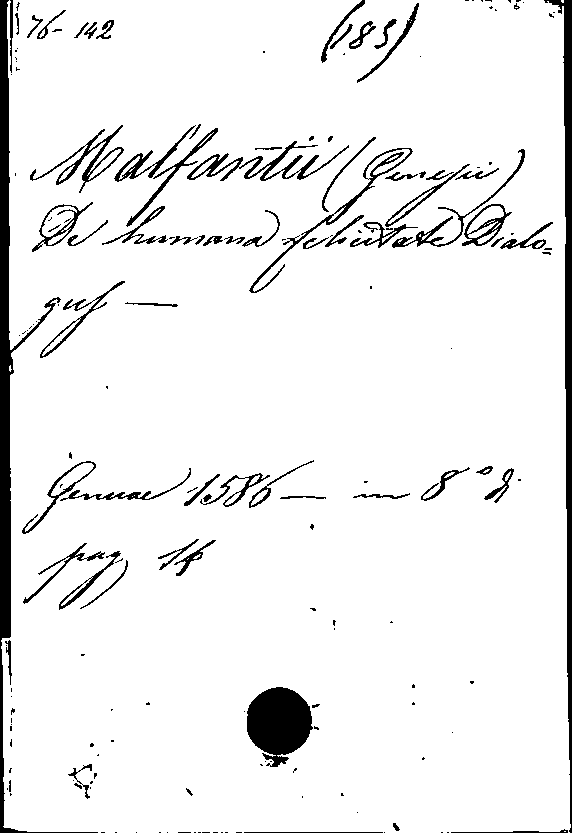 76-142 (185)
Malfantii (Genesii)
De humana felicitate Dialo=
gus —
Genuae 1586 — in 8° di
pag 14